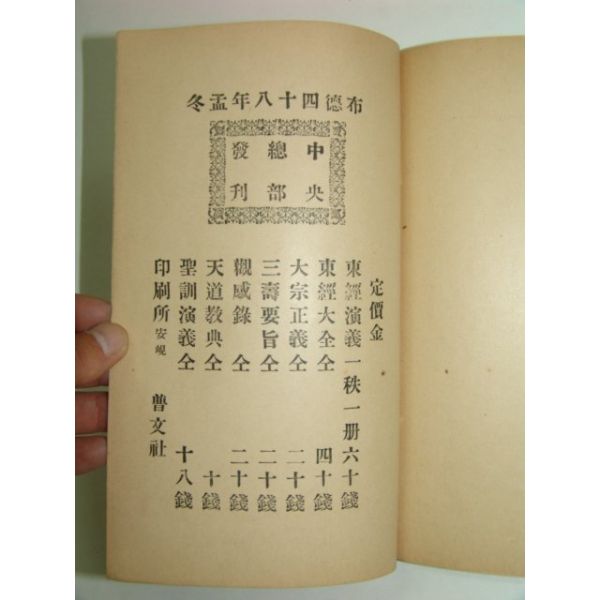 布德四十八年孟冬
中央
總部
發刊
定價金
東經演義一秩一册六十錢
東經大全仝 四十錢
大宗正義仝 二十錢
三壽要旨仝 二十錢
觀感錄 仝 二十錢
天道教典仝 十錢
聖訓演義仝 十八錢
印刷所 安峴 普文社